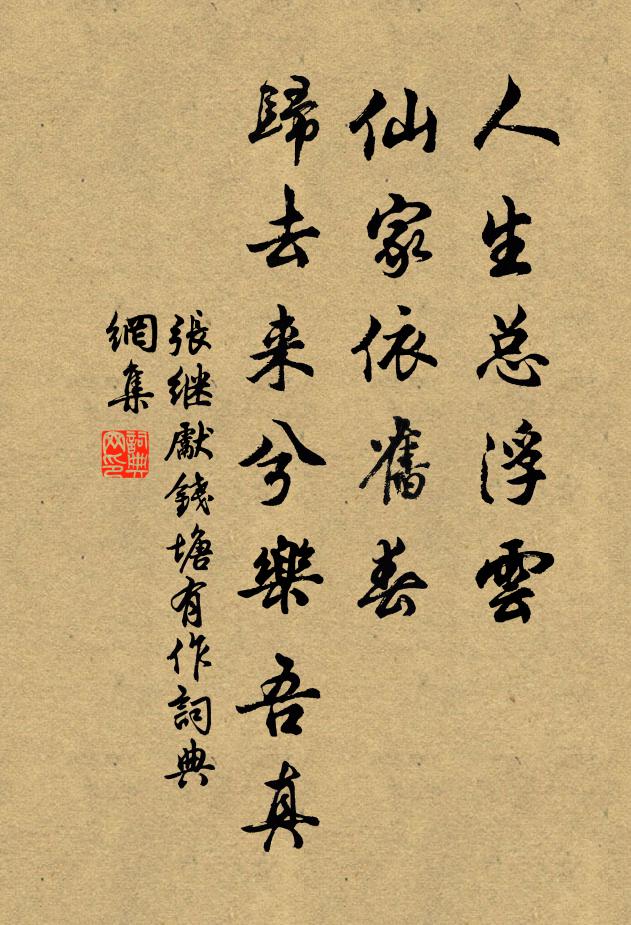 人生总浮雲
仙家依舊春
歸去来兮樂吾真
張继獻錢塘有作詞典
網集
詞典
网印